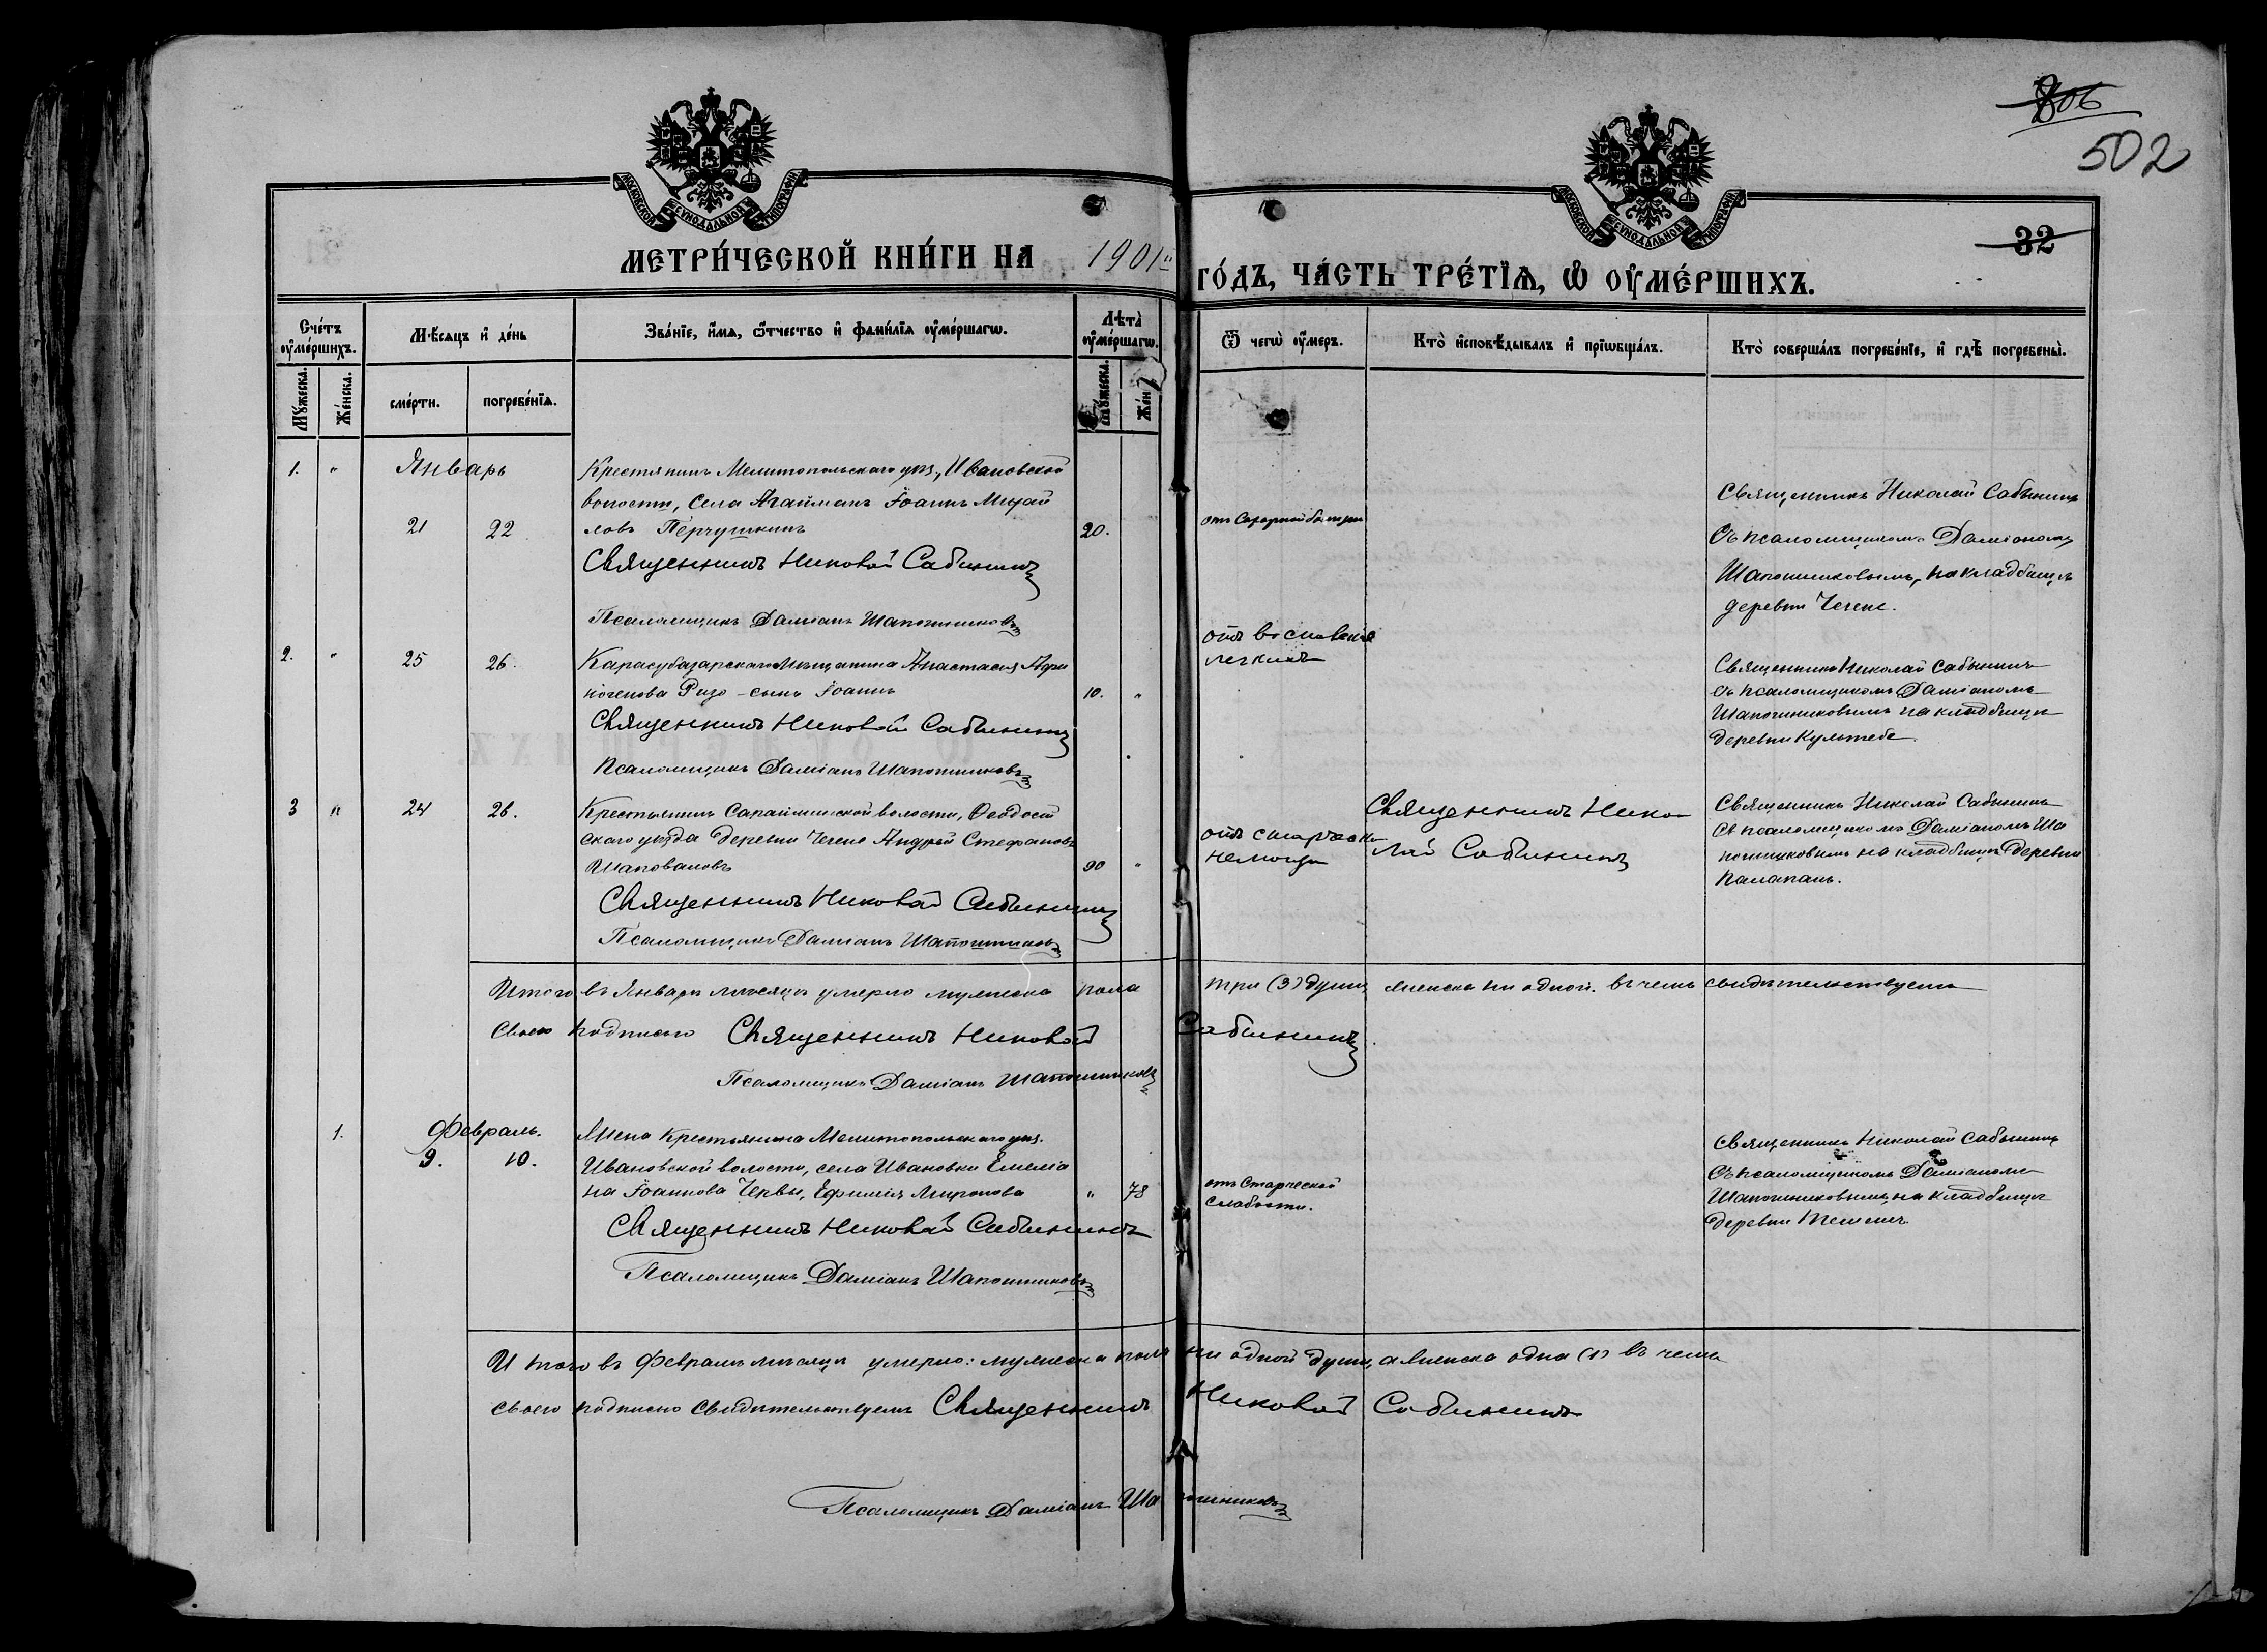 806
502
32
МОСКОВСКОЙ СѴНОДАЛЬНОЙ ТИПОГРАФІИ
МОСКОВСКОЙ СѴНОДАЛЬНОЙ ТИПОГРАФІИ
МЕТРИ́ЧЕСКОЙ КНИ́ГИ НА 1901й
ГО́ДЪ, ЧА́СТЬ ТРЕ́ТІѦ, Ѡ ОУМЕ́РШИХЪ.
Сче́тъ оуме́ршихъ.
Мѣ́сяцъ и де́нь
Зва́нїе, и́мя, ѻ́тчество и фами́лїя оуме́ршагѡ.
Лѣта̀ оуме́ршагѡ.
Ѿ чегѡ̀ оу́меръ.
Кто̀ исповѣ́дывалъ и прїѡбща́лъ.
Кто̀ соверша́лъ погребе́нїе, и гдѣ̀ погребены̀.
Му́жеска.
Же́нска.
сме́рти.
погребе́нїя.
Му́жеска.
Жен
1. " Январь
Крестянинъ Мелитопольскаго уѣз., Ивановской
волости, села Агайманъ Іоаннъ Михай
21 22 ловъ Перчушкинъ 20.
Священникъ Николай Сабининъ
Псаломщикъ Даміанъ Шапошниковъ
Священникъ Николай Сабининъ
съ псаломщикомъ Даміаномъ
Шапошниковымъ, на кладбищѣ
деревни Чегене.
2. " 25 26. Карасубазарскаго Мѣщанина Анастасія
сынъ Іоаннъ 10. "
Священникъ Николай Сабининъ
Псаломщикъ Даміанъ Шапошниковъ
отъ воспаленія
легкихъ
Священникъ Николай Сабининъ
съ псаломщикомъ Даміаномъ
Шапошниковымъ на кладбищѣ
деревни Культебе.
3 " 24 26. Крестьянинъ Сарайминской волости, Ѳеодосій
скаго уѣзда деревни Чегене Андрей Стефановъ
Шаповаловъ 90 "
Священникъ Николай Сабининъ
Псаломщикъ Даміанъ Шапошниковъ
отъ старческ
немощи
Священникъ Нико
лай Сабининъ
Священникъ Николай Сабининъ
съ псаломщикомъ Даміаномъ Ша
пошниковымъ на кладбищѣ деревни
Палапанъ.
Итого въ Январѣ мѣсяцѣ умерло мужеска пола три (3) души, женска ни одной. въ чемъ свидѣтельствуемъ
своею подписью Священникъ Николай Сабининъ
Псаломщикъ Даміанъ Шапошниковъ
1. Февраль. Жена Крестьянина Мелитопольскаго уѣз.
9. 10. Ивановской волости, села Ивановки Емелія
на Іоаннова Червы, Ефимія Миронова " 78
Священникъ Николай Сабининъ
Псаломщикъ Даміанъ Шапошниковъ
отъ старческой
слабости.
Священникъ Николай Сабининъ
съ псаломщикомъ Даміаномъ
Шапошниковымъ на кладбищѣ
деревни
Итого въ Февралѣ мѣсяцѣ умерло: мужеска пола ни одной души, а женска одна (1) въ чемъ
своею подписью свидѣтельствуемъ Священникъ Николай Сабининъ
Псаломщикъ Даміанъ Шапошниковъ